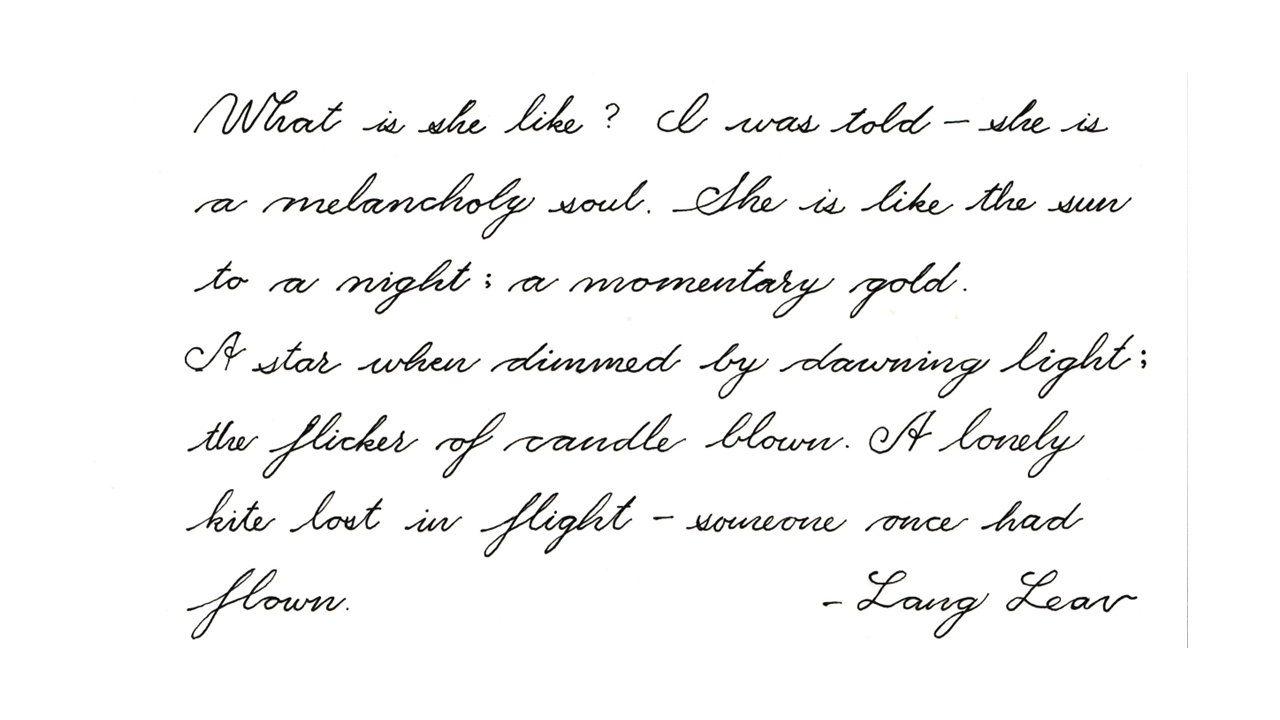 What is she like? I was told – she is
a melancholy soul. She is like the sun
to a night; a momentary gold.
A star when dimmed by dawning light;
the flicker of candle blown. A lonely
kite lost in flight – someone once had
flown. – Lang Leav